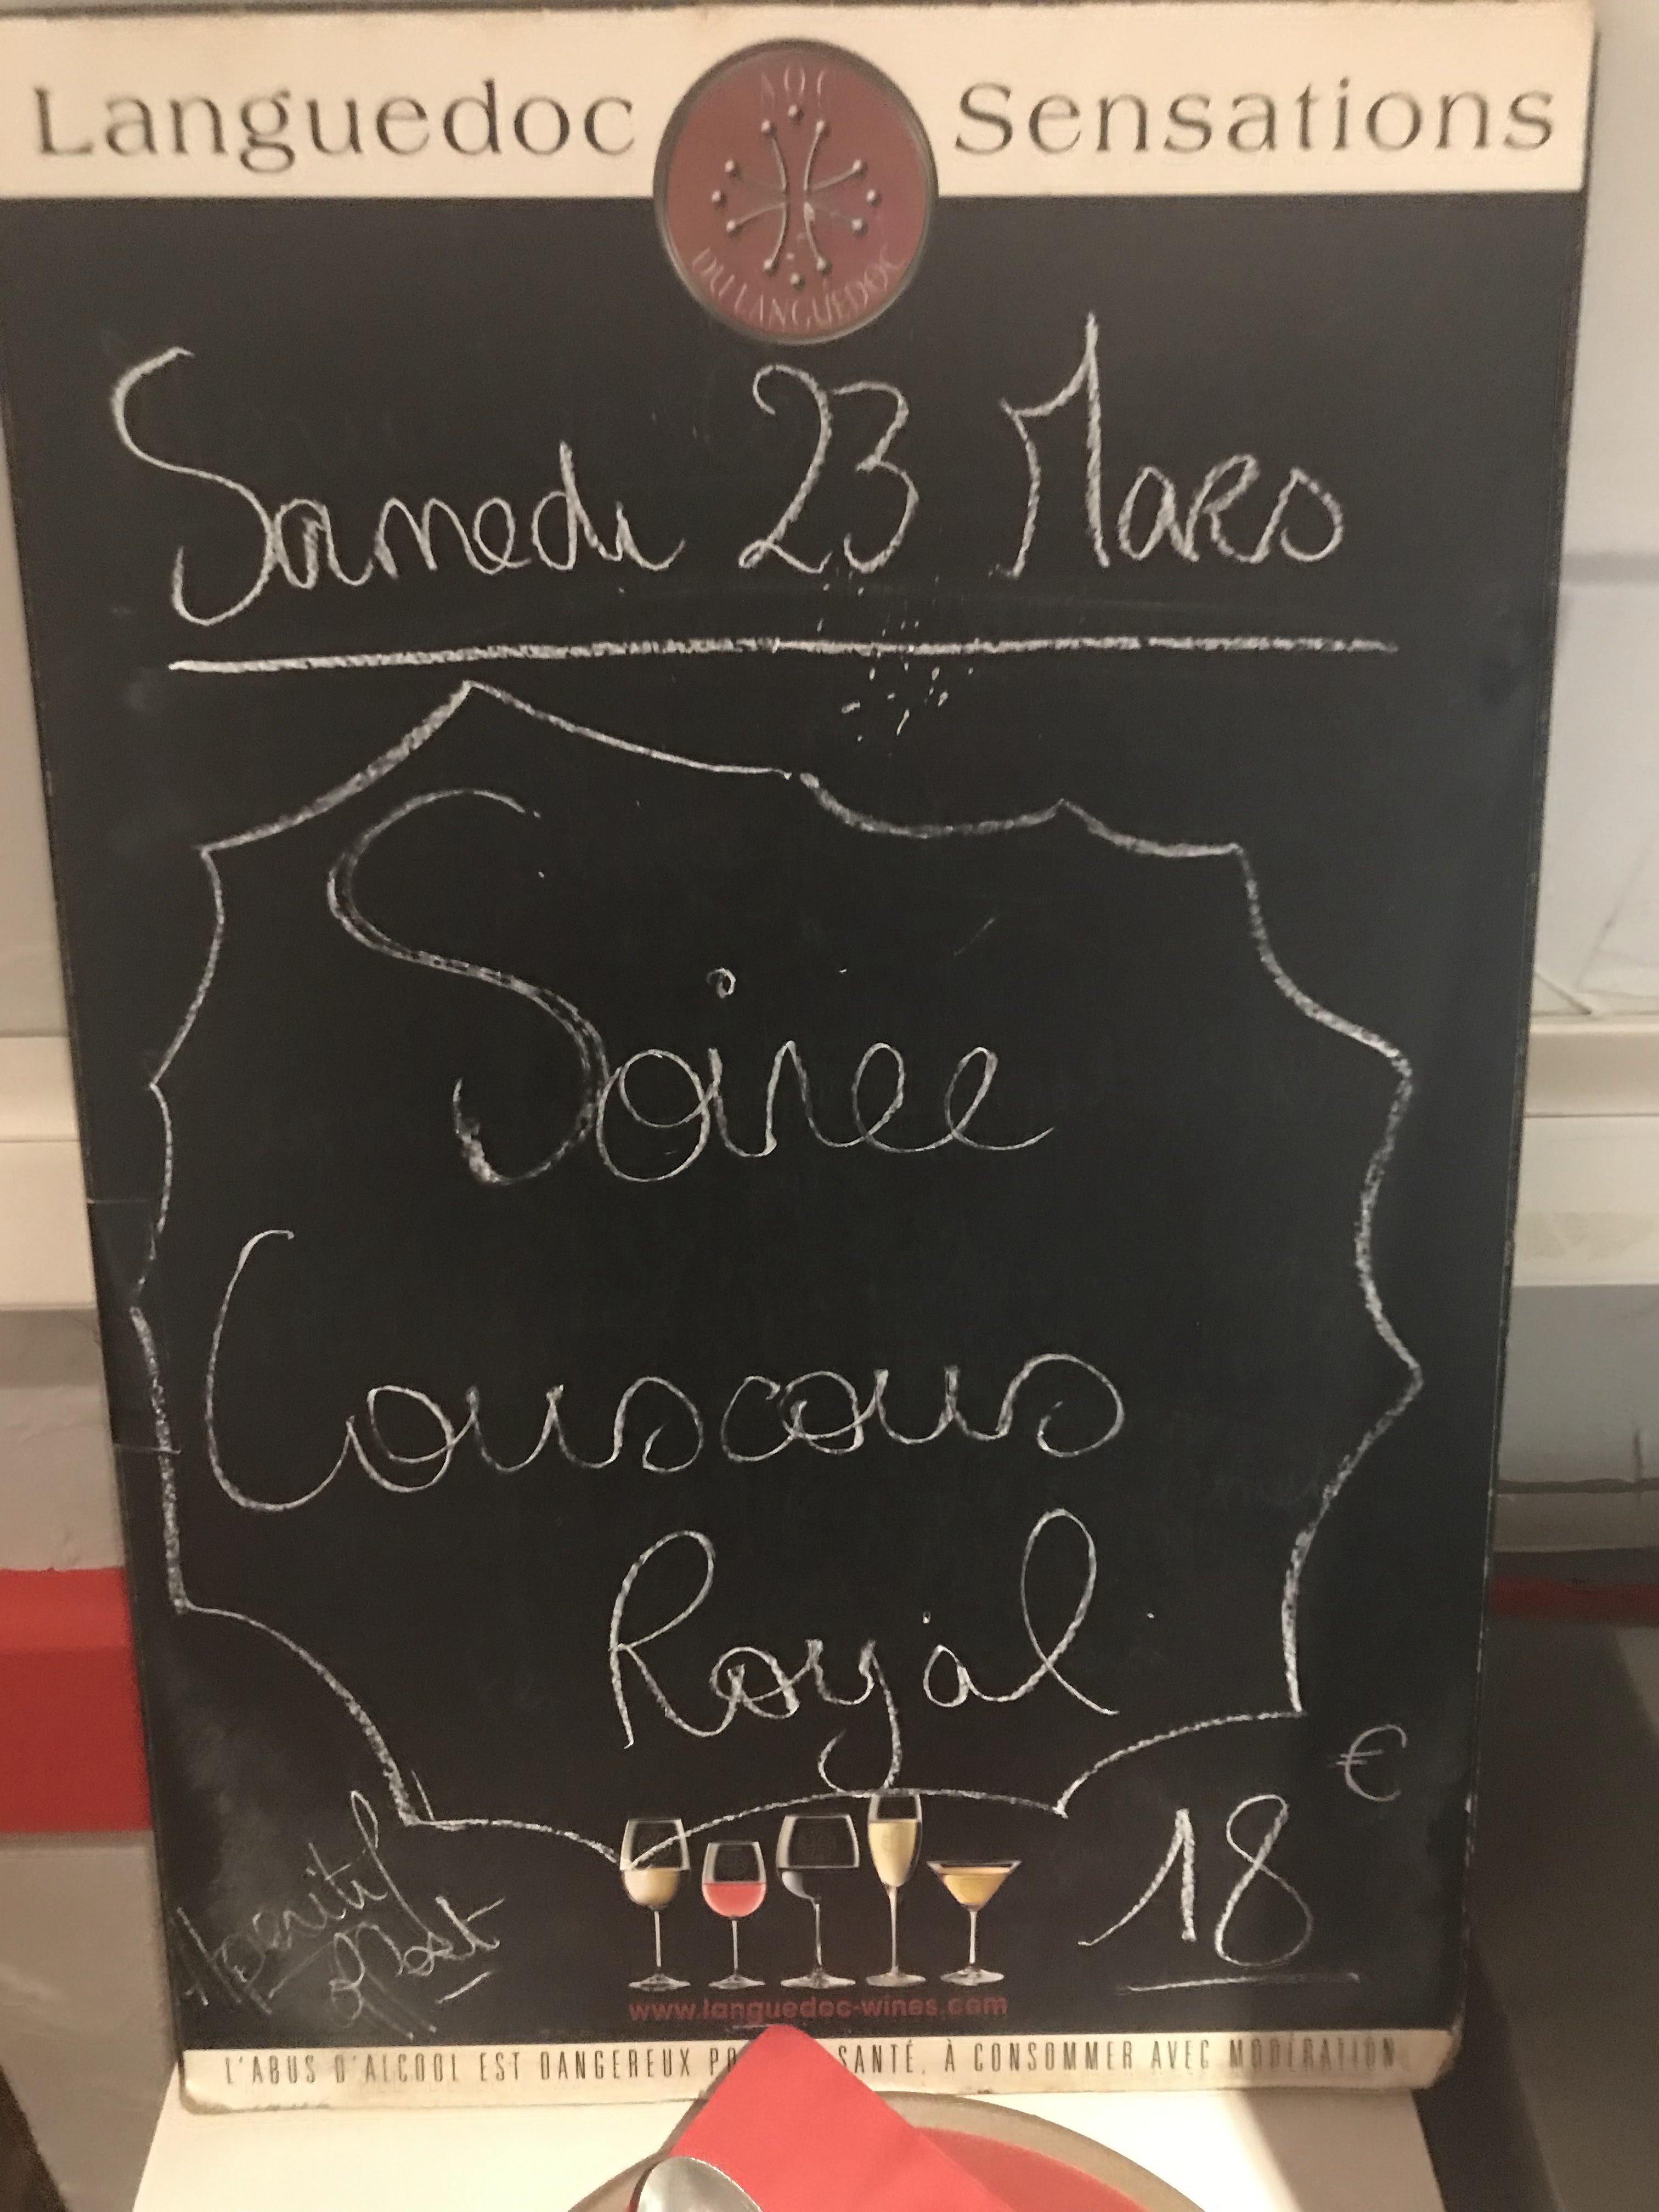 Languedoc Sensations
AOC
DU LANGUEDOC
Samedi 23 Mars
Soirée
Couscous
Royal
€
18
Apéritif
offert
www.languedoc-wines.com
L'ABUS D'ALCOOL EST DANGEREUX SANTÉ, À CONSOMMER AVEC MODÉRATION